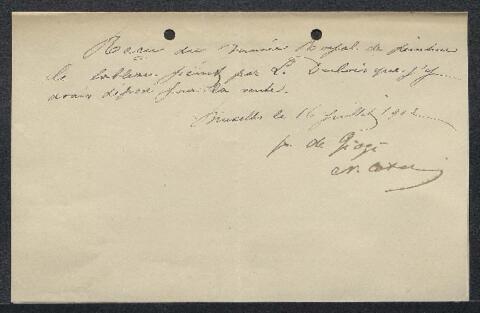 Reçu du Musée Royal de peinture
le tableau peint par L. Dubois que j'y
avais déposé pour la vente.
Bruxelles le 16 juillet 1902
p. de